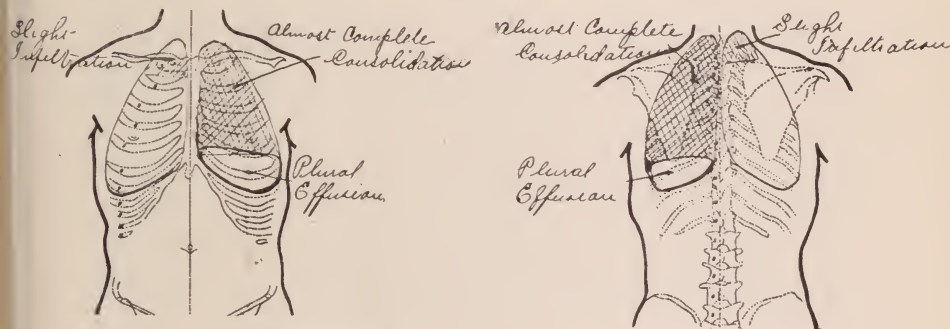 Slight
Infiltration
Almost Complete
Consolidation
Plural
Effusion
Almost Complete
Consolidation
Slight
Infiltration
Plural
Effusion